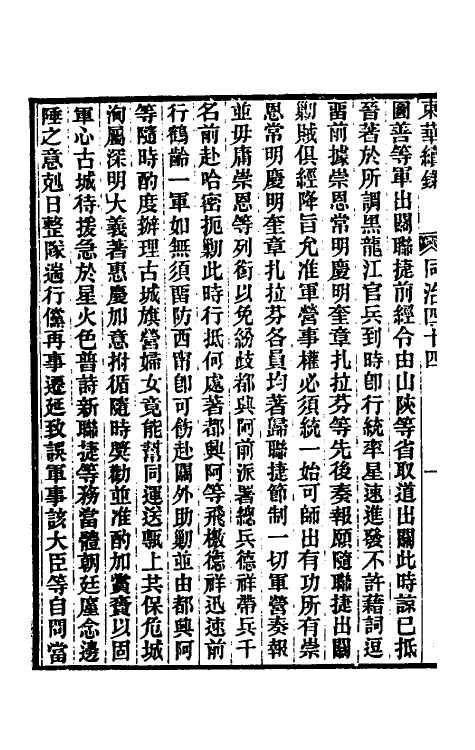 東華續錄 同治四十四 一
圖善等軍出關聯捷前經令由山陝等省取道出關此時諒已抵
晉著於所調黑龍江官兵到時卽行統率星速進發不許藉詞逗
畱前據崇恩常明慶明奎章扎拉芬等先後奏報願隨聯捷出關
勦賊俱經降旨允准軍營事權必須統一始可師出有功所有崇
恩常明慶明奎章扎拉芬各員均著歸聯捷節制一切軍營奏報
並毋庸崇恩等列銜以免紛歧都興阿前派署總兵德祥帶兵千
名前赴哈密扼勦此時行抵何處著都興阿等飛檄德祥迅速前
行鶴齡一軍如無須畱防西甯卽可飭赴關外助勦並由都興阿
等隨時酌度辦理古城旗營婦女竟能幫同運送甎上共保危城
洵屬深明大義著惠慶加意拊循隨時獎勸並准酌加賞賚以固
軍心古城待援急於星火色普詩新聯捷等務當體朝廷廑念邊
陲之意剋日整隊遄行儻再事遷延致誤軍事該大臣等自問當